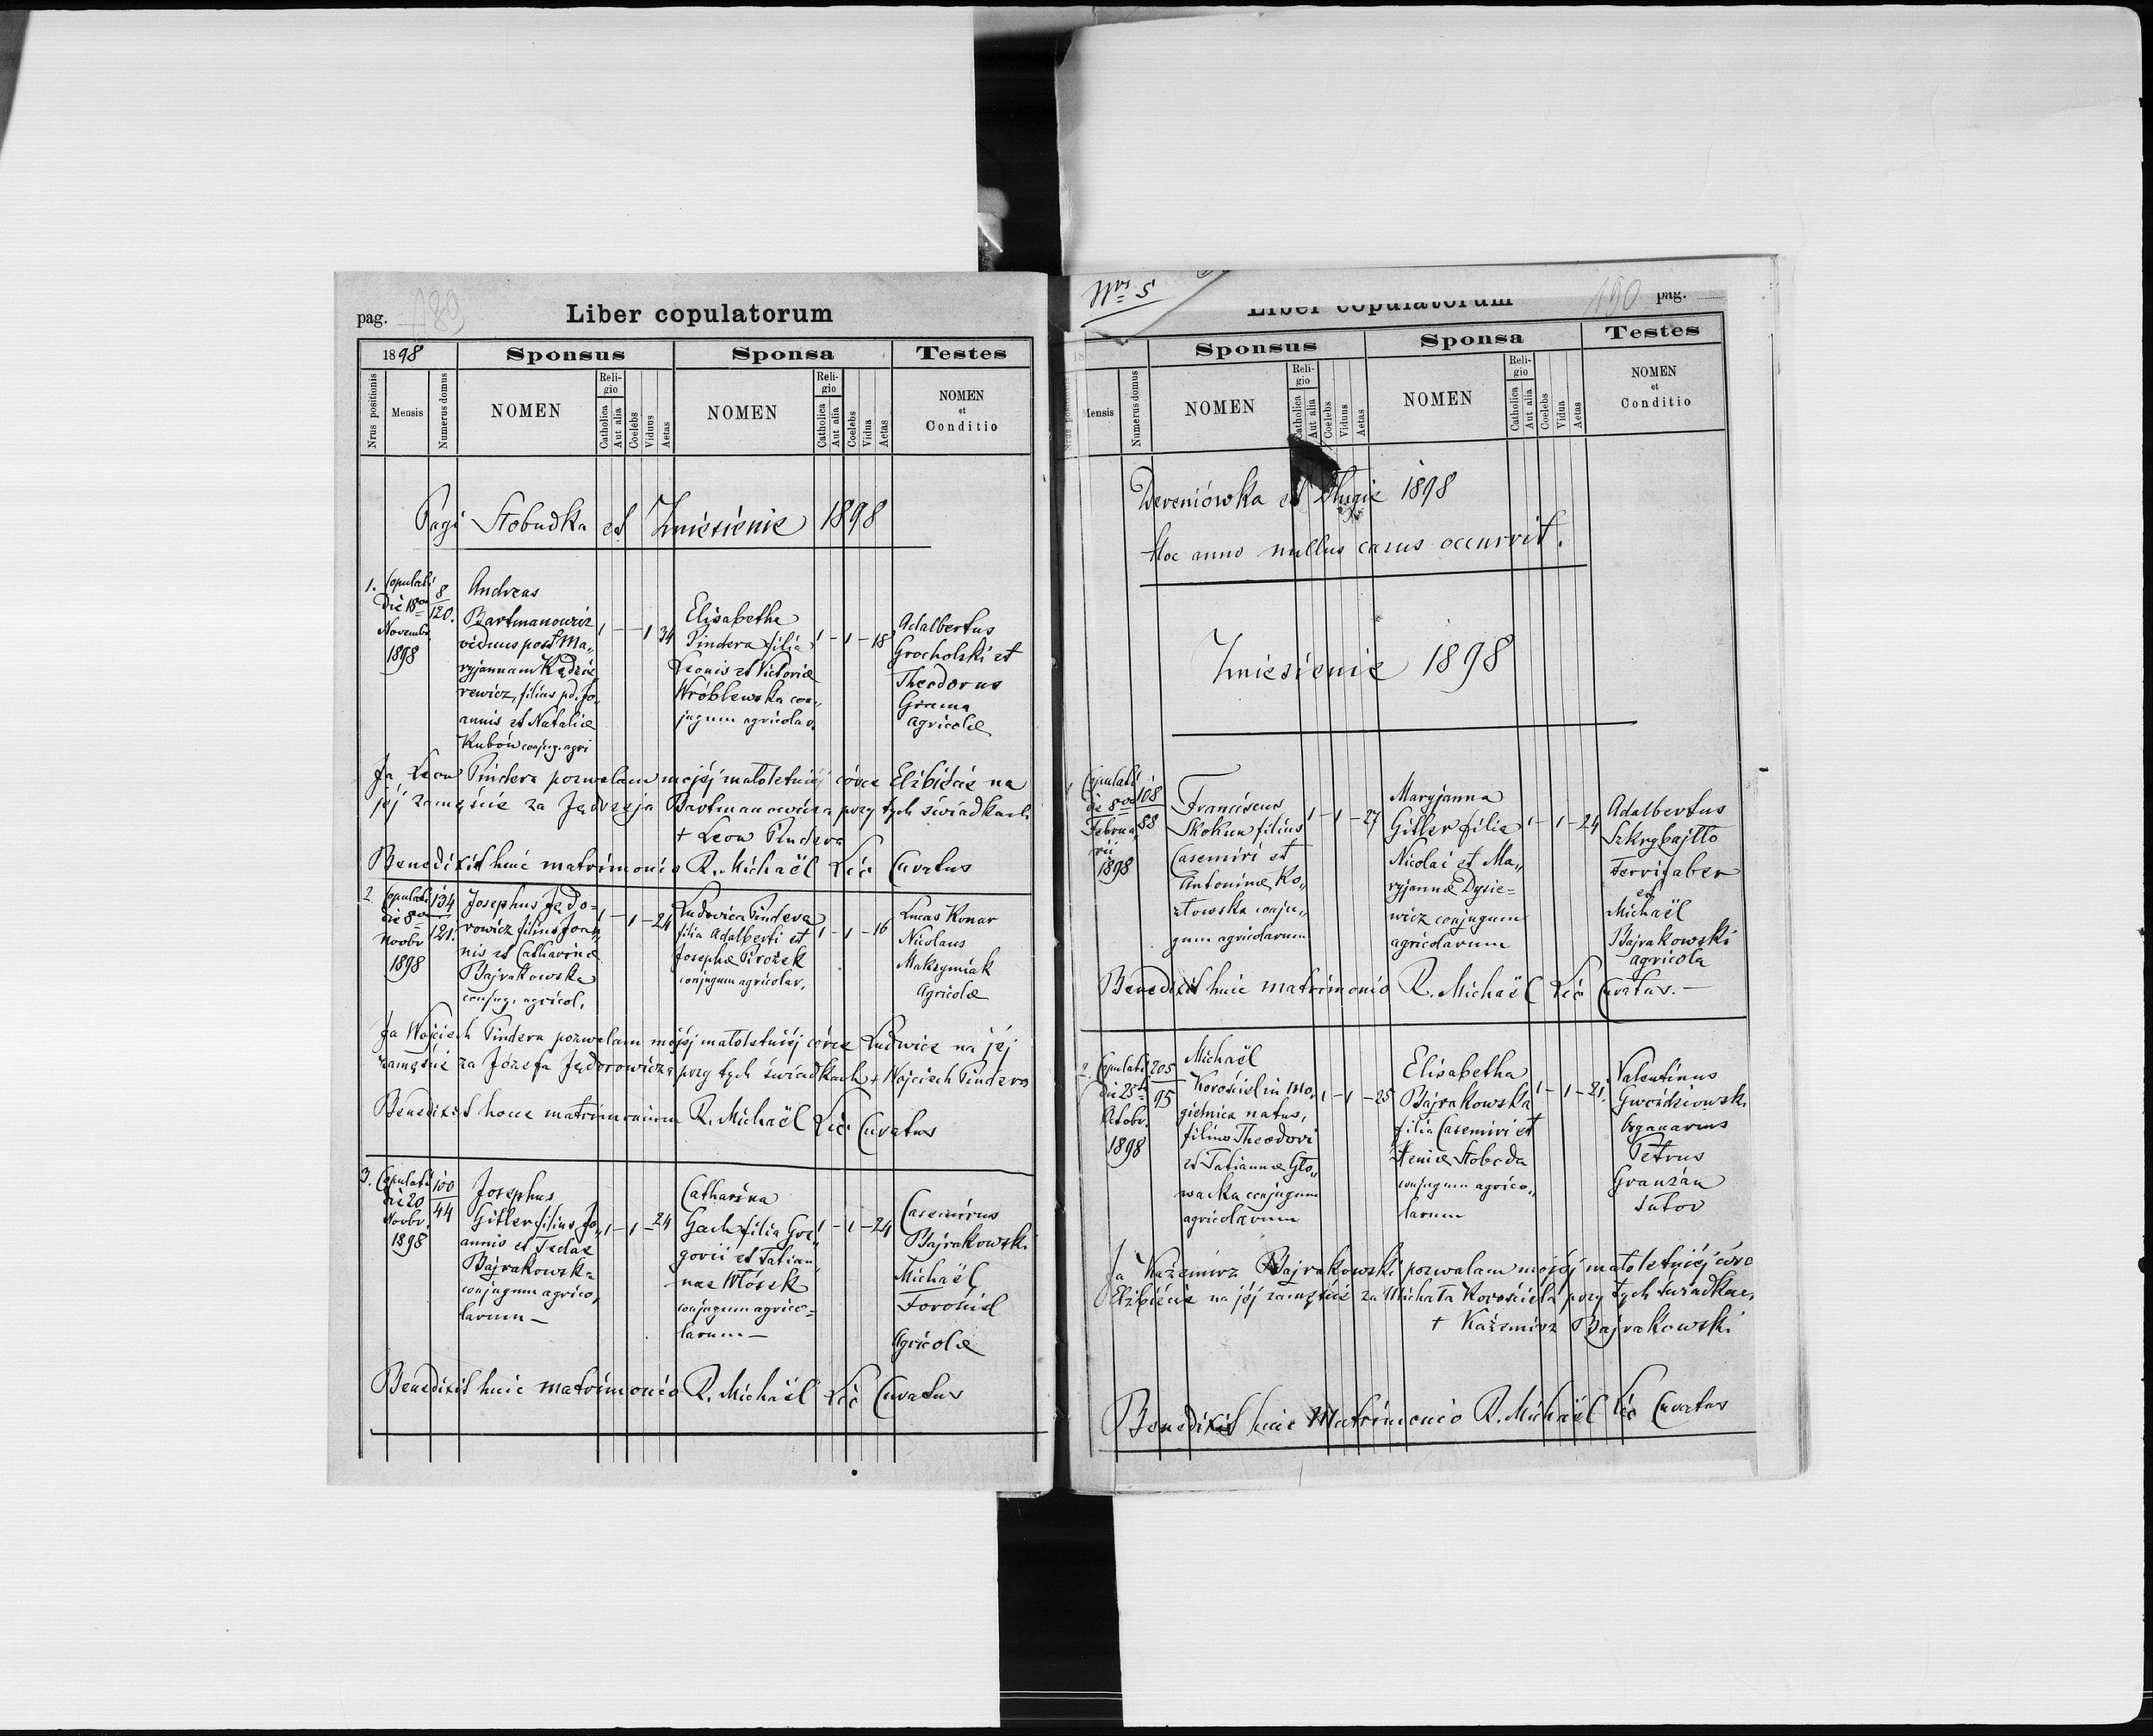 pag. 189
Liber copulatorum
1898
Sponsus
Sponsa
Testes
Nrus positionis
Mensis
Numerus domus
NOMEN
Religio
Catholica
Aut alia
Coelebs
Viduus
Aetas
NOMEN
Religio
Catholica
Aut alia
Coelebs
Vidua
Aetas
NOMEN
et
Conditio
Pagi Słobudka et Zniesienie 1898
1. Copulati
die 18va
Novembr.
1898
8
120.
Andreas
Bartmanowicz
viduus post Ma„
ryjannam Kądzie„
rewicz, filius pd. Jo„
annis et Nataliæ
Kubów conjug. agri
1 — — 1 34
Elisabetha
Pindera filia
Leonis et Victoriæ
Wróblewska con„
jugum agricolar.
1 — 1 — 18
Adalbertus
Grocholski et
Theodorus
Agricolæ
Ja Leon Pindera pozwalam mojéj małoletniéj córce Elżbiécie na
jéj zamęście za Jędrzeja Bartmanowicza przy tych świadkach
+ Leon Pindera
Benedixit huic matrimonio R. Michaël Lić Curatus
2. Copulati
die 8va
Novbr
1898
134
121.
Josephus Jędo=
rowicz filius Joan„
nis et Catharinæ
Bajrakowska
conjug. agricol.
1 — 1 — 24
Ludovica Pindera
filia Adalberti et
Josephæ Pirożek
conjugum agricolar.
1 — 1 — 16
Lucas Konar
Nicolaus
Maksymiak
Agricolæ
Ja Wojciech Pindera pozwalam mojéj małoletniéj córce Ludwice na jéj
zamęście za Józefa Jędorowicza przy tych świadkach + Wojciech Pindera
Benedixit hocce matrimonium R. Michaël Lić Curatus
3. Copulati
die 20
Novbr.
1898
100
44
Josephus
Gitler filius Jo„
annis et Teclae
Bajrakowska
conjugum agrico„
larum —
1 — 1 — 24
Catharina
Gach filia Gre„
gorii et Tatian„
nae Włósek
conjugum agrico=
larum —
1 — 1 — 24
Casimirus
Bajrakowski
Michaël
Forosiel
Agricolæ
Benedixit huic matrimonio R. Michaël Lić Curatus
Nrs 5
Liber copulatorum
190 pag.
18
Sponsus
Sponsa
Testes
Nrus positionis
Mensis
Numerus domus
NOMEN
Religio
Catholica
Aut alia
Coelebs
Viduus
Aetas
NOMEN
Religio
Catholica
Aut alia
Coelebs
Vidua
Aetas
NOMEN
et
Conditio
Dereniówka et Długie 1898
Hoc anno nullus casus occurrit.
Zniesienie 1898
1 Copulati
die 8va
Februa„
rii
1898
108
88
Franciscus
Skokun filius
Casemiri et
Antoninæ Ko„
złowska conju„
gum agricolarum
1 — 1 — 27
Maryjanna
Gitler filia
Nicolai et Ma„
ryjannæ Dysie=
wicz conjugum
agricolarum
1 — 1 — 24
Adalbertus
Szkrybajłło
Ferrifaber
et
Michaël
Bajrakowski
agricola
Benedixit huic matrimonio R. Michaël Lić Curatus. —
2. Copulati
die 25ta
Octobr.
1898
205
95
Michaël
Korościel in Mo„
gielnica natus,
filius Theodori
et Tatiannæ Gło„
wacka conjugum
agricolarum
1 — 1 — 25
Elisabetha
Bajrakowska
filia Casemiri et
Xeniæ Słoboda
conjugum agrico„
larum
1 — 1 — 21.
Valentinus
Gwoździowski
Organarius
Petrus
Granżan
Sutor
Ja Kaźmirz Bajrakowski pozwalam mojéj małoletniéj córce
Elżbiécie na jéj zamęście za Michała Korościela przy tych świadkach
+ Kaźmirz Bajrakowski
Benedixit huic Matrimonio R. Michaël Lić Curatus